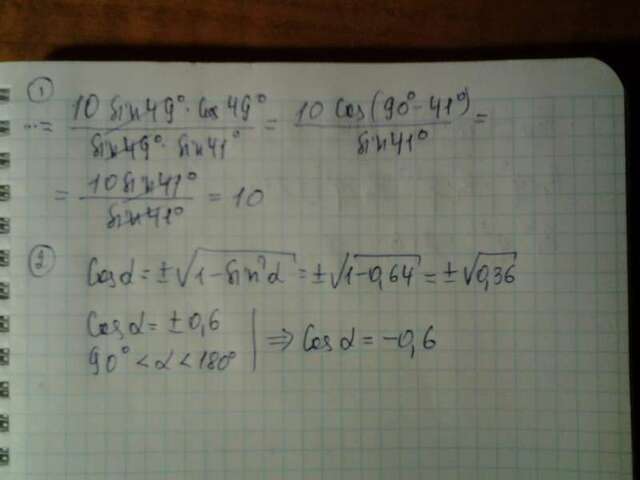 ①
...= 10 sin49°·cos49° / sin49°·sin41° = 10 cos(90°-41°) / sin41° =
= 10 sin41° / sin41° = 10
②
Cosα = ±√1-sin²α = ±√1-0,64 = ±√0,36
Cosα = ±0,6
90° < α < 180° | ⇒ Cosα = -0,6